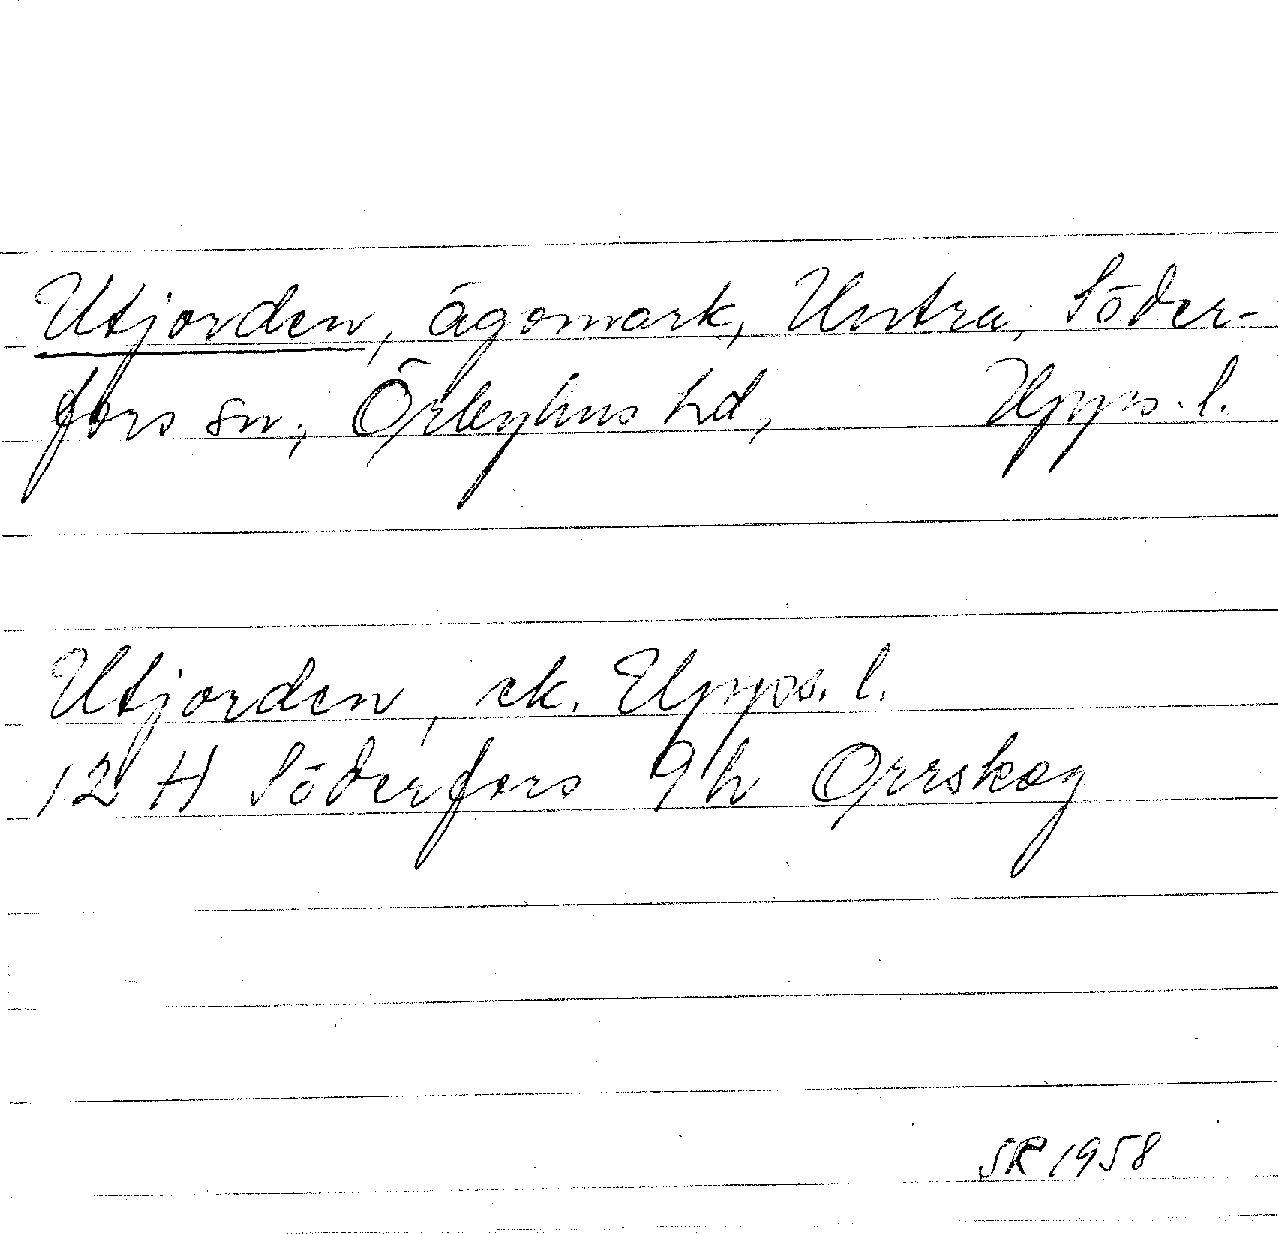 Utjorden, ägomark, Untra, Söder-
fors sn, Örbyhus hd, Upps. l.
Utjorden, ek. Upps. l.
12 H Söderfors 9 h Orrskog
SR 1958